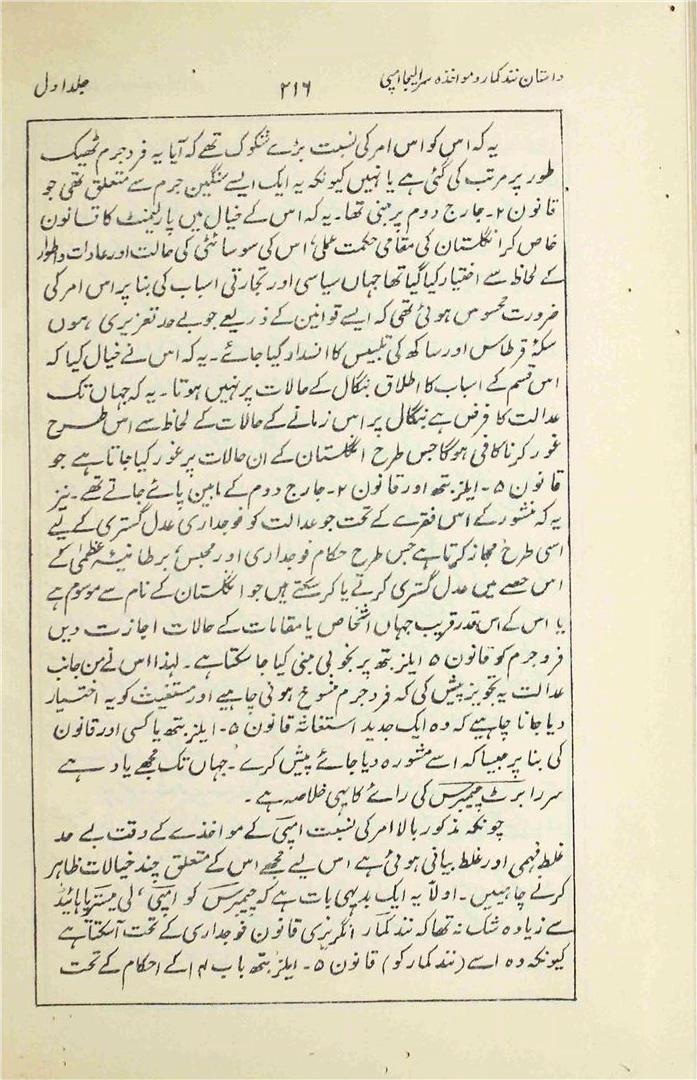 داستان نندکمار و مواخذہ سر الیجا امپی ۲۱۶ جلد اول
یہ کہ اس کو اس امر کی نسبت بڑے شکوک تھے کہ آیا یہ فرد جرم ٹھیک
طور پر مرتب کی گئی ہے یا نہیں کیونکہ یہ ایک ایسے سنگین جرم سے متعلق تھی جو
قانون ۲۔ جارج دوم پر مبنی تھا۔ یہ کہ اس کے خیال میں پارلیمنٹ کا قانون
خاص کر انگلستان کی مقامی حکمت عملی، اس کی سوسائٹی کی حالت اور عادات و اطوار
کے لحاظ سے اختیار کیا گیا تھا جہاں سیاسی اور تجارتی اسباب کی بنا پر اس امر کی
ضرورت محسوس ہوئی تھی کہ ایسے قوانین کے ذریعے جو بے حد تعزیری ہوں
سکۂ قرطاس اور ساکھ کی تلبیس کا انسداد کیا جائے۔ یہ کہ اس نے خیال کیا کہ
اس قسم کے اسباب کا اطلاق بنگال کے حالات پر نہیں ہوتا۔ یہ کہ جہاں تک
عدالت کا فرض ہے بنگال پر اس زمانے کے حالات کے لحاظ سے اس طرح
غور کرنا کافی ہوگا جس طرح انگلستان کے ان حالات پر غور کیا جاتا ہے جو
قانون ۵۔ ایلزبتھ اور قانون ۲۔ جارج دوم کے مابین پائے جاتے تھے۔ نیز
یہ کہ منشور کے اس فقرے کے تحت جو عدالت کو فوجداری عدل گستری کے لیے
اسی طرح مجاز کرتا ہے جس طرح حکام فوجداری اور محبس برطانیۂ عظمیٰ کے
اس حصے میں عدل گستری کرتے یا کر سکتے ہیں جو انگلستان کے نام سے موسوم ہے
یا اس کے اس قدر قریب جہاں اشخاص یا مقامات کے حالات اجازت دیں
فرد جرم کو قانون ۵ ایلزبتھ پر بخوبی مبنی کیا جا سکتا ہے۔ لہذا اس نے من جانب
عدالت یہ تجویز پیش کی کہ فرد جرم منسوخ ہونی چاہیے اور مستغیث کو یہ اختیار
دیا جانا چاہیے کہ وہ ایک جدید استغاثہ قانون ۵۔ ایلزبتھ یا کسی اور قانون
کی بنا پر جیسا کہ اسے مشورہ دیا جائے پیش کرے۔ جہاں تک مجھے یاد ہے
سر رابرٹ چیمبرس کی رائے کا یہی خلاصہ ہے۔
چونکہ مذکور بالا امر کی نسبت امپی کے مواخذے کے وقت بے حد
غلط فہمی اور غلط بیانی ہوئی ہے اس لیے مجھے اس کے متعلق چند خیالات ظاہر
کرنے چاہییں۔ اولاً یہ ایک بدیہی بات ہے کہ چیمبرس کو امپی، لی میسٹر یا ہائیڈ
سے زیادہ شک نہ تھا کہ نندکمار انگریزی قانون فوجداری کے تحت آسکتا ہے
کیونکہ وہ اسے (نندکمار کو) قانون ۵۔ ایلزبتھ باب ۱۴ کے احکام کے تحت